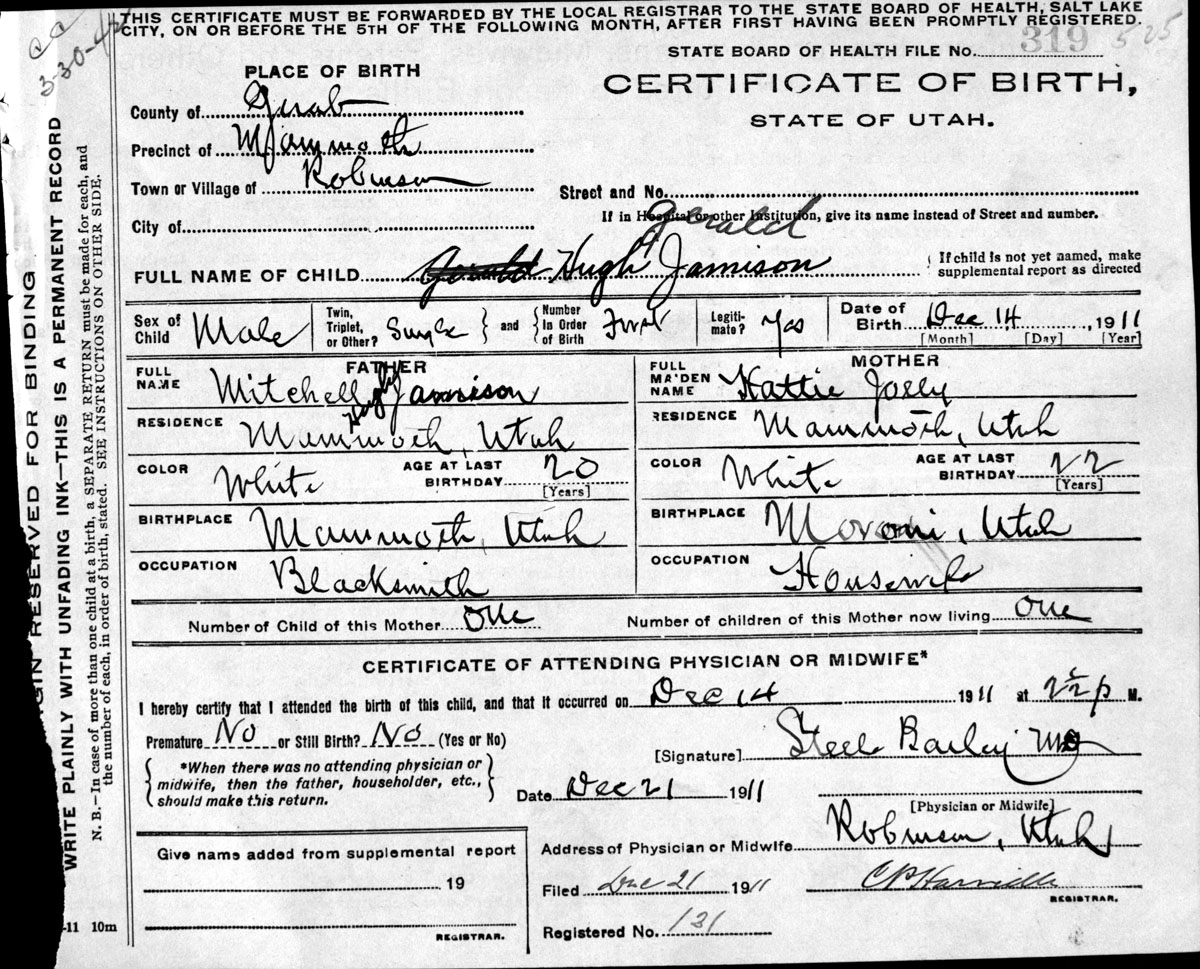 THIS CERTIFICATE MUST BE FORWARDED BY THE LOCAL REGISTRAR TO THE STATE BOARD OF HEALTH, SALT LAKE
CITY, ON OR BEFORE THE 5TH OF THE FOLLOWING MONTH, AFTER FIRST HAVING BEEN PROMPTLY REGISTERED.
3-30-42
STATE BOARD OF HEALTH FILE No. 319 525
PLACE OF BIRTH
CERTIFICATE OF BIRTH,
STATE OF UTAH.
County of Juab
Precinct of Mammoth
Town or Village of Robinson
Street and No.
If in Hospital or other Institution, give its name instead of Street and number.
City of
Gerald
FULL NAME OF CHILD Gerald Hugh Jamison
If child is not yet named, make
supplemental report as directed
Sex of Child Male
Twin, Triplet, or Other? Single
and Number In Order of Birth First
Legitimate? Yes
Date of Birth Dec 14, 1911
[Month] [Day] [Year]
FATHER
FULL NAME Mitchell Hugh Jamison
RESIDENCE Mammoth, Utah
COLOR White AGE AT LAST BIRTHDAY 20
[Years]
BIRTHPLACE Mammoth, Utah
OCCUPATION Blacksmith
MOTHER
FULL MAIDEN NAME Hattie Jolly
RESIDENCE Mammoth, Utah
COLOR White AGE AT LAST BIRTHDAY 22
[Years]
BIRTHPLACE Moroni, Utah
OCCUPATION Housewife
Number of Child of this Mother One Number of children of this Mother now living One
CERTIFICATE OF ATTENDING PHYSICIAN OR MIDWIFE*
I hereby certify that I attended the birth of this child, and that it occurred on Dec 14 1911 at p M.
Premature No or Still Birth? No (Yes or No)
[Signature] Steele Bailey MD
*When there was no attending physician or
midwife, then the father, householder, etc.,
should make this return.
Date Dec 21 1911
[Physician or Midwife]
Address of Physician or Midwife Robinson, Utah
Give name added from supplemental report
19
REGISTRAR.
Filed Dec 21 1911
REGISTRAR.
Registered No. 131
-11 10m
RGIN RESERVED FOR BINDING
WRITE PLAINLY WITH UNFADING INK—THIS IS A PERMANENT RECORD
N. B.—In case of more than one child at a birth, a SEPARATE RETURN must be made for each, and
the number of each, in order of birth, stated. SEE INSTRUCTIONS ON OTHER SIDE.